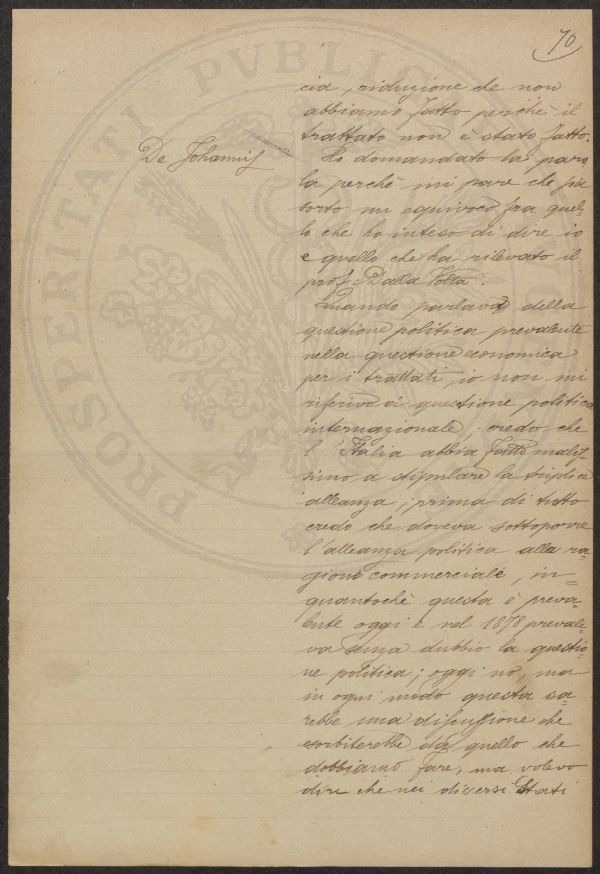 70
cia, riduzione che non
abbiamo fatto perchè il
trattato non è stato fatto.
De Johannis
Ho domandato la paro
la perchè mi pare che sia
sorto un equivoco fra quel=
lo che ho inteso di dire io
e quello che ha rilevato il
prof. Dalla Volta.
Quando parlavo della
questione politica prevalente
nella questione economica
per i trattati, io non mi
riferivo a questione politica
internazionale; credo che
l'Italia abbia fatto malis=
simo a stipulare la triplice
alleanza; prima di tutto
credo che doveva sottoporre
l'alleanza politica alla ra=
gione commerciale, in=
quantochè questa è preva=
lente oggi e nel 1878 prevale=
va senza dubbio la questio=
ne politica; oggi no, ma
in ogni modo questa sa=
rebbe una discussione che
esorbiterebbe da quello che
dobbiamo fare, ma volevo
dire che nei diversi Stati
PROSPERITATI PVBLIC